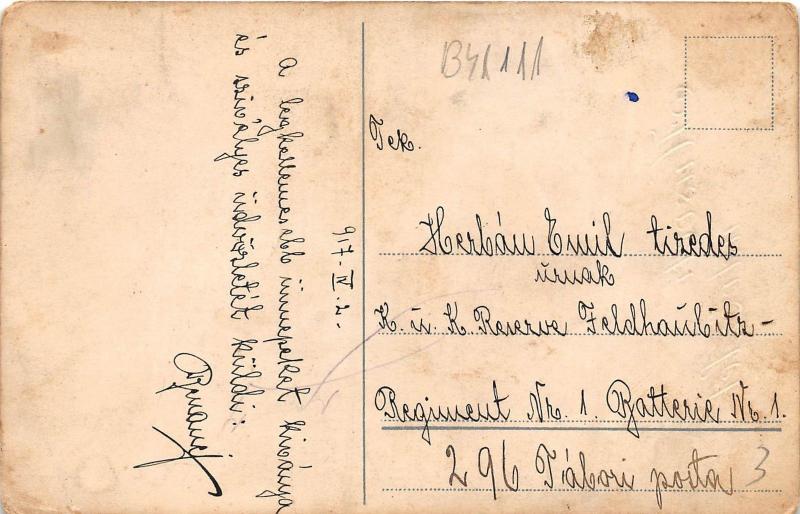 917. IV. 2.-
A legkellemesebb ünnepeket kivánja
és szivélyes üdvözletét küldi:
B41111
Tek.
Herbán Emil tizedes
úrnak
K. u. K. Reserve Feldhaubitz-
Regiment Nr. 1. Batterie Nr. 1.
296 Tábori posta
3